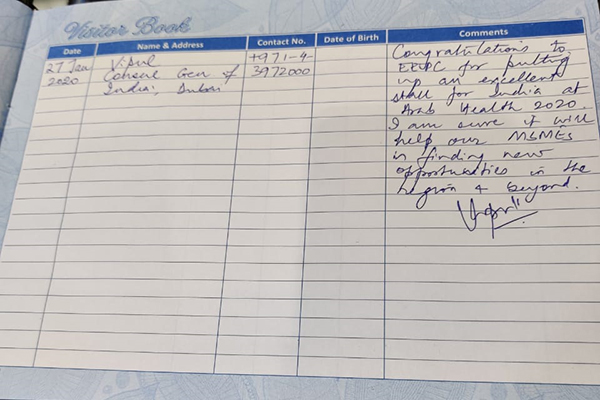 Visitor Book
Date Name & Address Contact No. Date of Birth Comments
27 Jan
2020
Vipul
Consul Gen of
India, Dubai
+971-4-
3972000
Congratulations to
EEPC for putting
up an excellent
stall for India at
Arab Health 2020.
I am sure it will
help our MSMEs
in finding new
opportunities in the
region & beyond.
Vipul